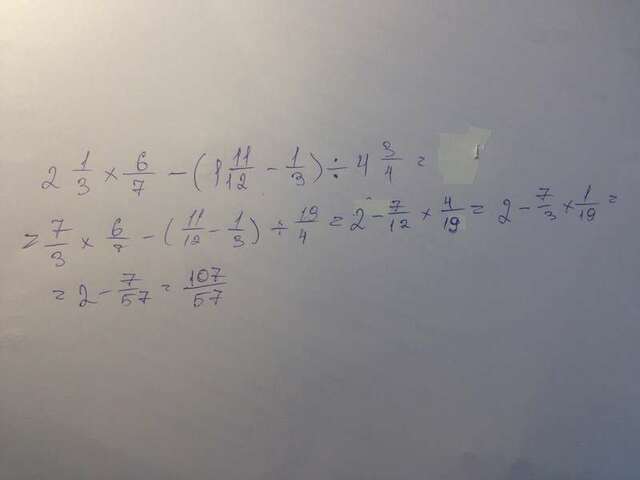 2 1/3 × 6/7 - (1 11/12 - 1/3) ÷ 4 3/4 =
= 7/3 × 6/7 - (11/12 - 1/3) ÷ 19/4 = 2 - 7/12 × 4/19 = 2 - 7/3 × 1/19 =
= 2 - 7/57 = 107/57